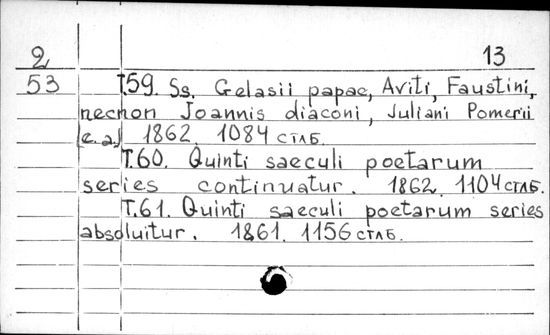 2 13
53 T.59. Ss. Gelasii papae, Aviti, Faustini,
necnon Joannis diaconi, Juliani Pomerii
[e.a.] 1862. 1084 стлб.
T.60. Quinti saeculi poetarum
series continuatur. 1862. 1104 стлб.
T.61. Quinti saeculi poetarum series
absoluitur. 1861. 1156 стлб.